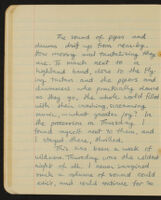 The sound of pipes and
drums starts up from nearby.
How moving and tantalizing they
are. To march next to a
highland band, close to the fly-
ing tartans and the pipers and
drummers who practically dance
as they go, the whole world filled
with their crashing, screaming
music, — what greater joy? In
the procession on Thursday I
found myself next to them, and
I stayed there, thrilled.
This has been a week of
wildness. Thursday was the wildest
night of all. I never imagined
such a volume of sound could
exist, and could continue for so